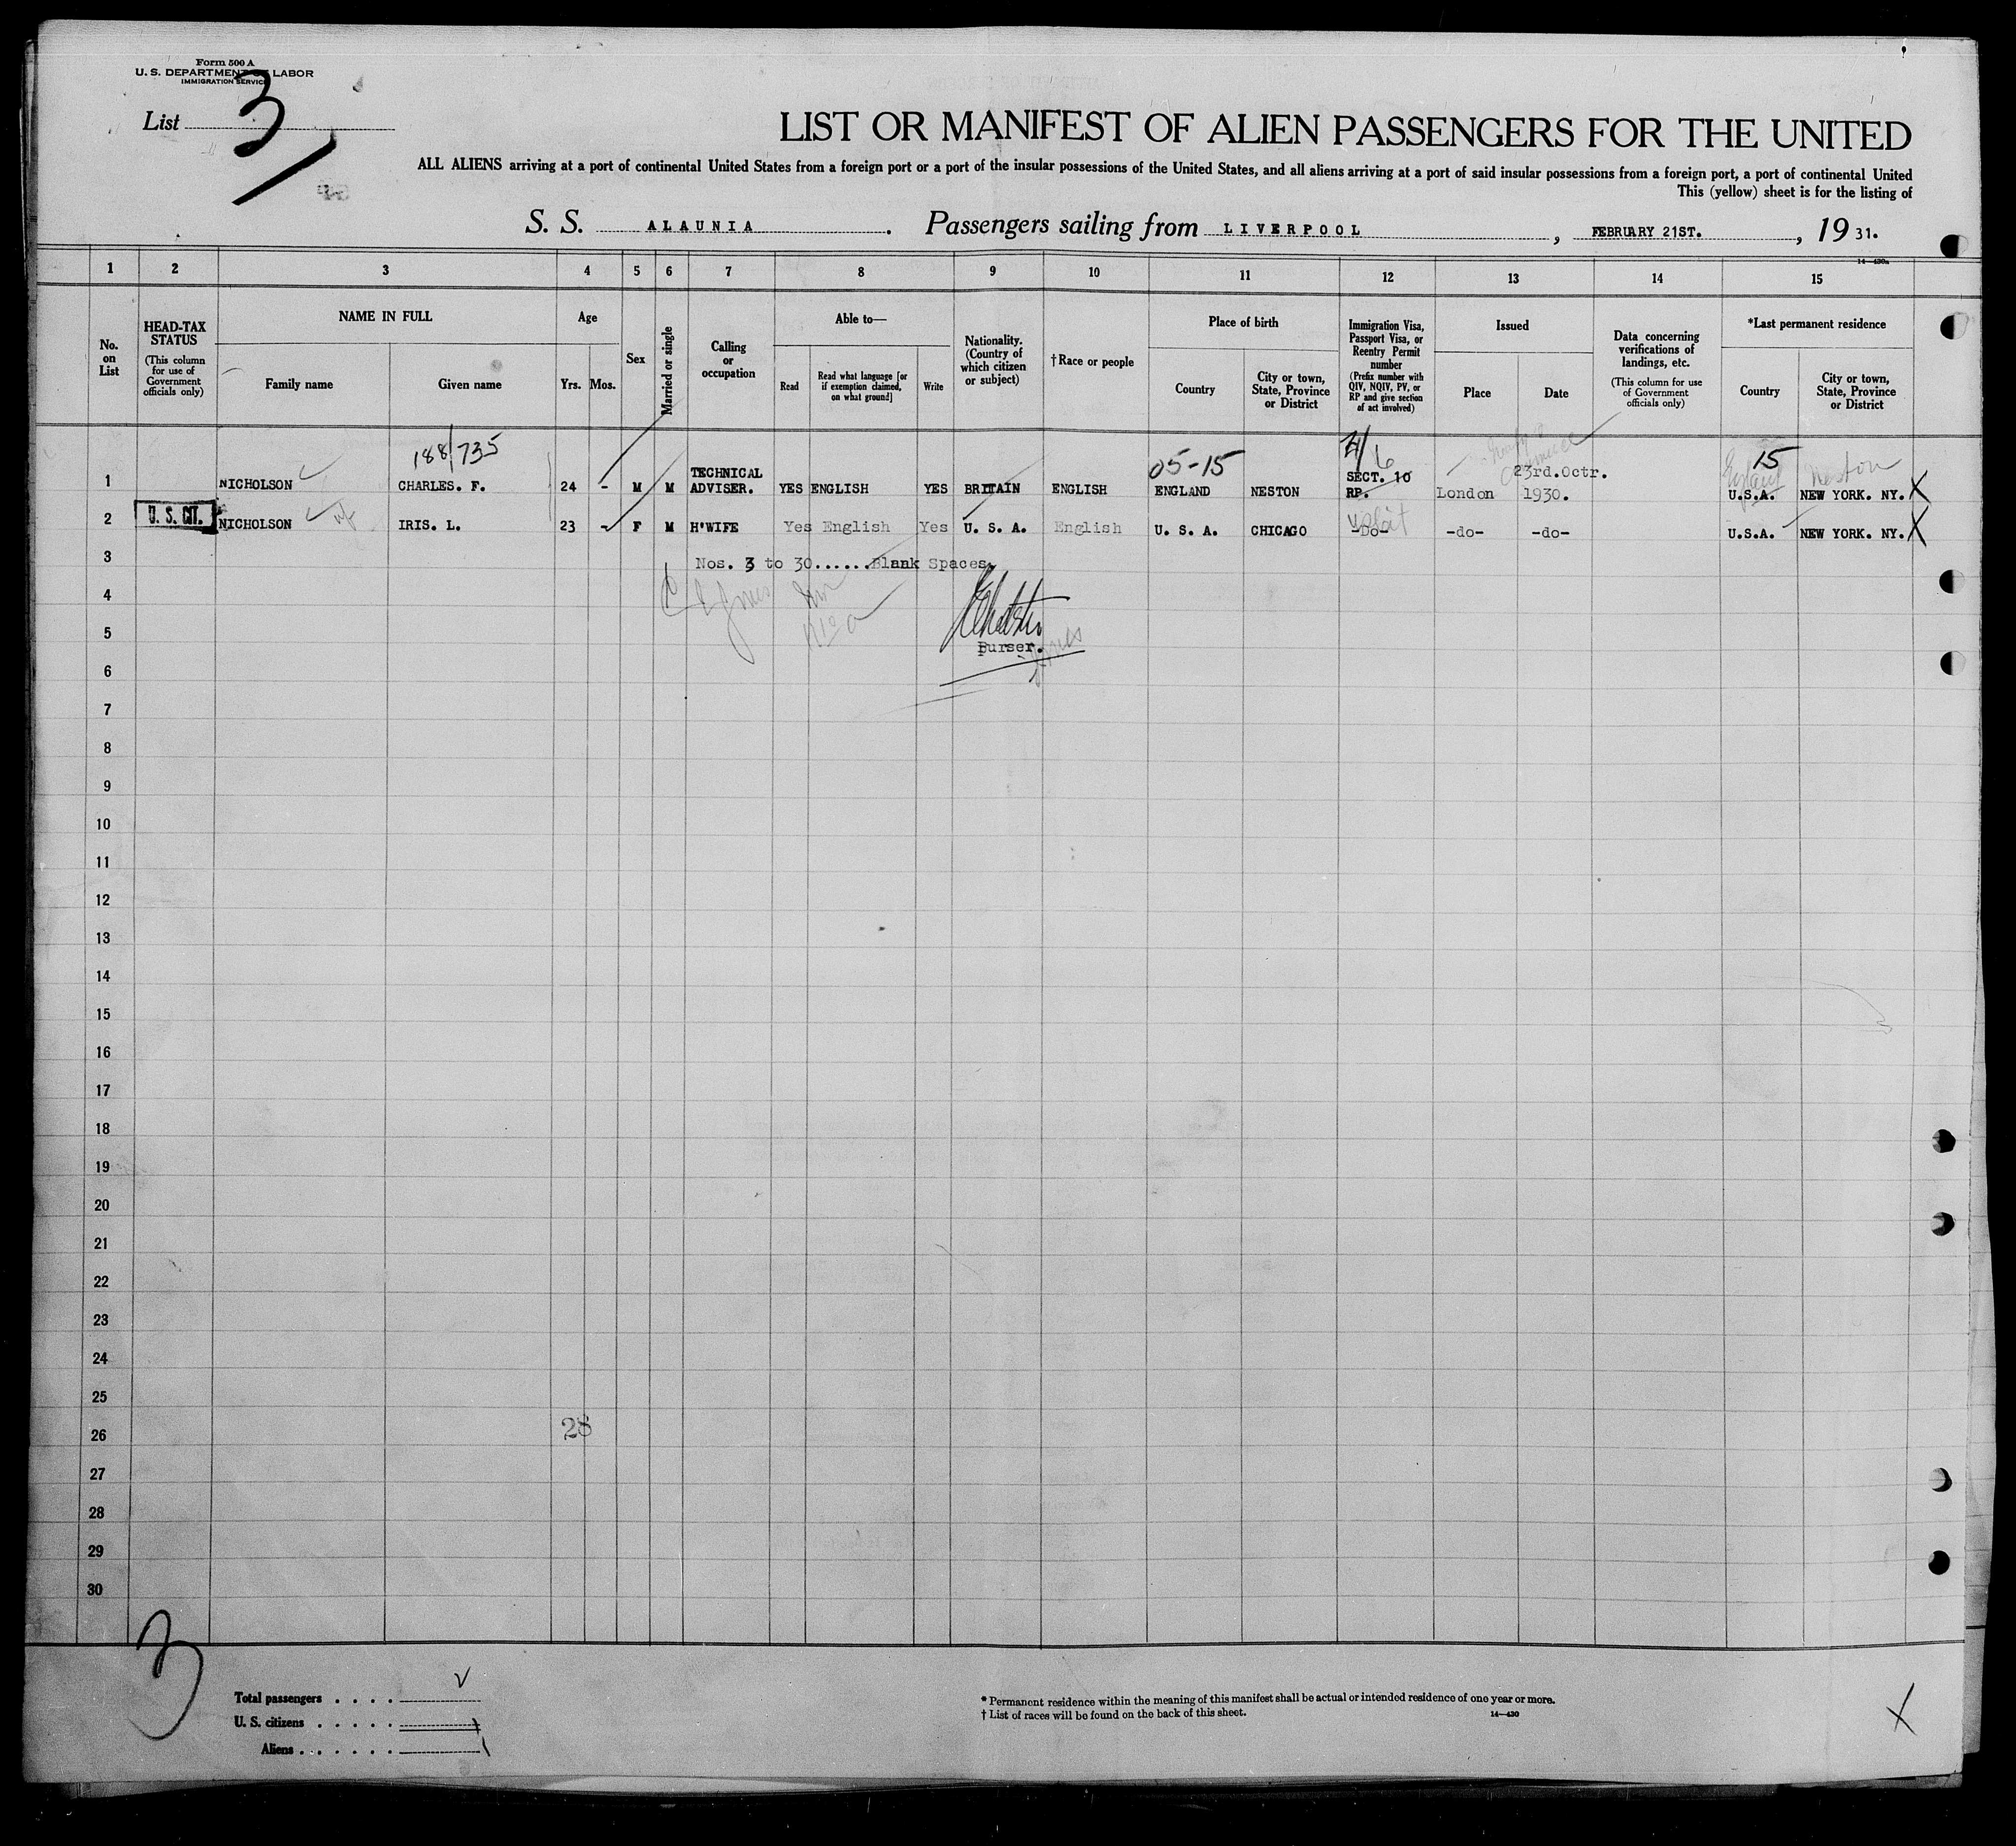 Form 500 A
U. S. DEPARTMENT OF LABOR
IMMIGRATION SERVICE
List 3
LIST OR MANIFEST OF ALIEN PASSENGERS FOR THE UNITED
ALL ALIENS arriving at a port of continental United States from a foreign port or a port of the insular possessions of the United States, and all aliens arriving at a port of said insular possessions from a foreign port, a port of continental United
This (yellow) sheet is for the listing of
S. S. ALAUNIA. Passengers sailing from LIVERPOOL, FEBRUARY 21ST., 1931.
14—430a
1 2 3 4 5 6 7 8 9 10 11 12 13 14 15
No. on List
HEAD-TAX STATUS
(This column for use of Government officials only)
NAME IN FULL
Family name
Given name
Age
Yrs. Mos.
Sex
Married or single
Calling or occupation
Able to—
Read
Read what language [or if exemption claimed, on what ground]
Write
Nationality. (Country of which citizen or subject)
†Race or people
Place of birth
Country
City or town, State, Province or District
Immigration Visa, Passport Visa, or Reentry Permit number
(Prefix number with QIV, NQIV, PV, or RP and give section of act involved)
Issued
Place
Date
Data concerning verifications of landings, etc.
(This column for use of Government officials only)
*Last permanent residence
Country
City or town, State, Province or District
188/735
05-15
4/6
15
England Neston
1 NICHOLSON CHARLES. F. 24 - M M TECHNICAL ADVISER. YES ENGLISH YES BRITAIN ENGLISH ENGLAND NESTON SECT. 10 RP. London 23rd.Octr. 1930. U.S.A. NEW YORK. NY. X
2 U. S. CIT. NICHOLSON IRIS. L. 23 - F M H'WIFE Yes English Yes U. S. A. English U. S. A. CHICAGO -Do- -do- -do- U.S.A. NEW YORK. NY. X
3 Nos. 3 to 30......Blank Spaces.
4
5
Purser.
6
7
8
9
10
11
12
13
14
15
16
17
18
19
20
21
22
23
24
25
26 28
27
28
29
30
3
Total passengers . . . .
U. S. citizens . . . . .
Aliens . . . . . .
* Permanent residence within the meaning of this manifest shall be actual or intended residence of one year or more.
† List of races will be found on the back of this sheet.
14—430
X